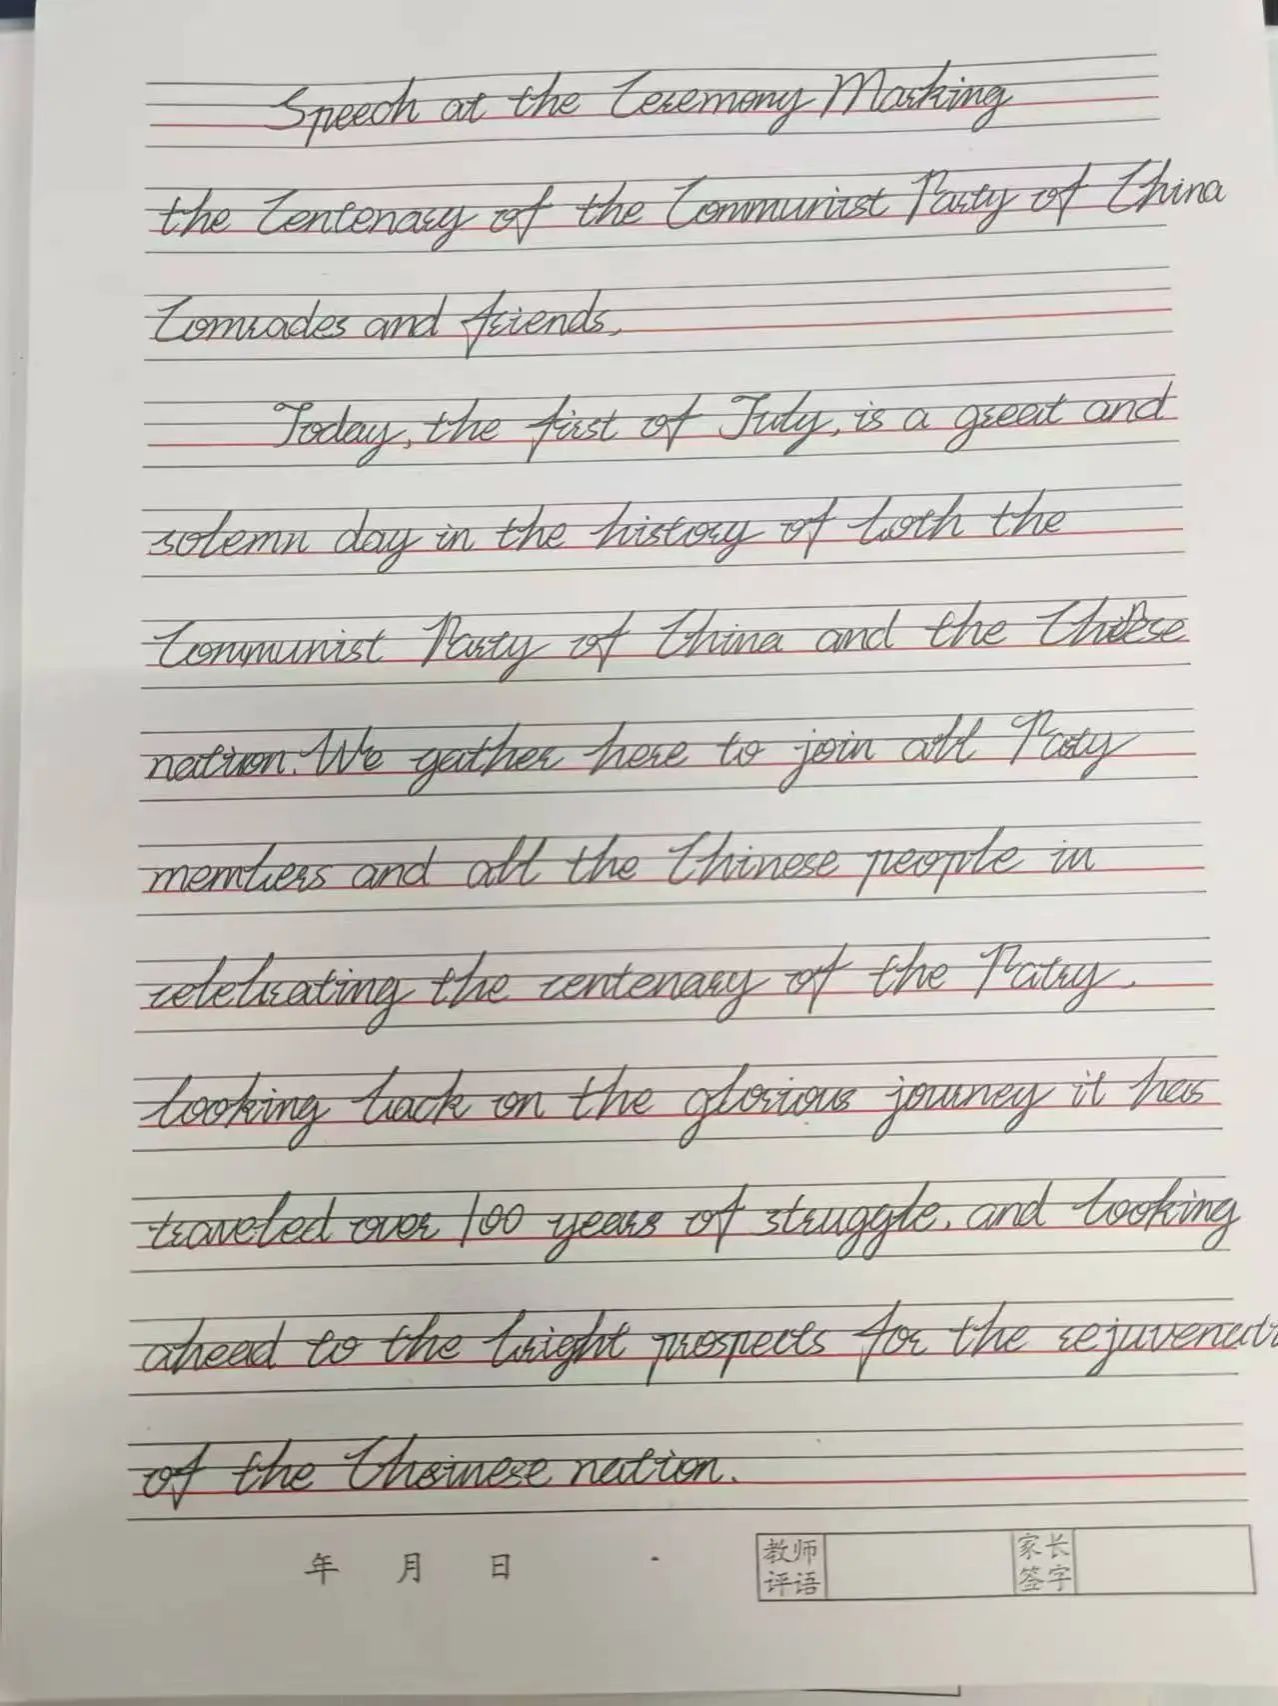 Speech at the Ceremony Marking
the Centenary of the Communist Party of China
Comrades and friends,
Today, the first of July, is a great and
solemn day in the history of both the
Communist Party of China and the Chinese
nation. We gather here to join all Party
members and all the Chinese people in
celebrating the centenary of the Patry.
looking back on the glorious journey it has
traveled over 100 years of struggle, and looking
ahead to the bright prospects for the rejuvenati
of the Chinese nation.
年 月 日
教师评语 家长签字